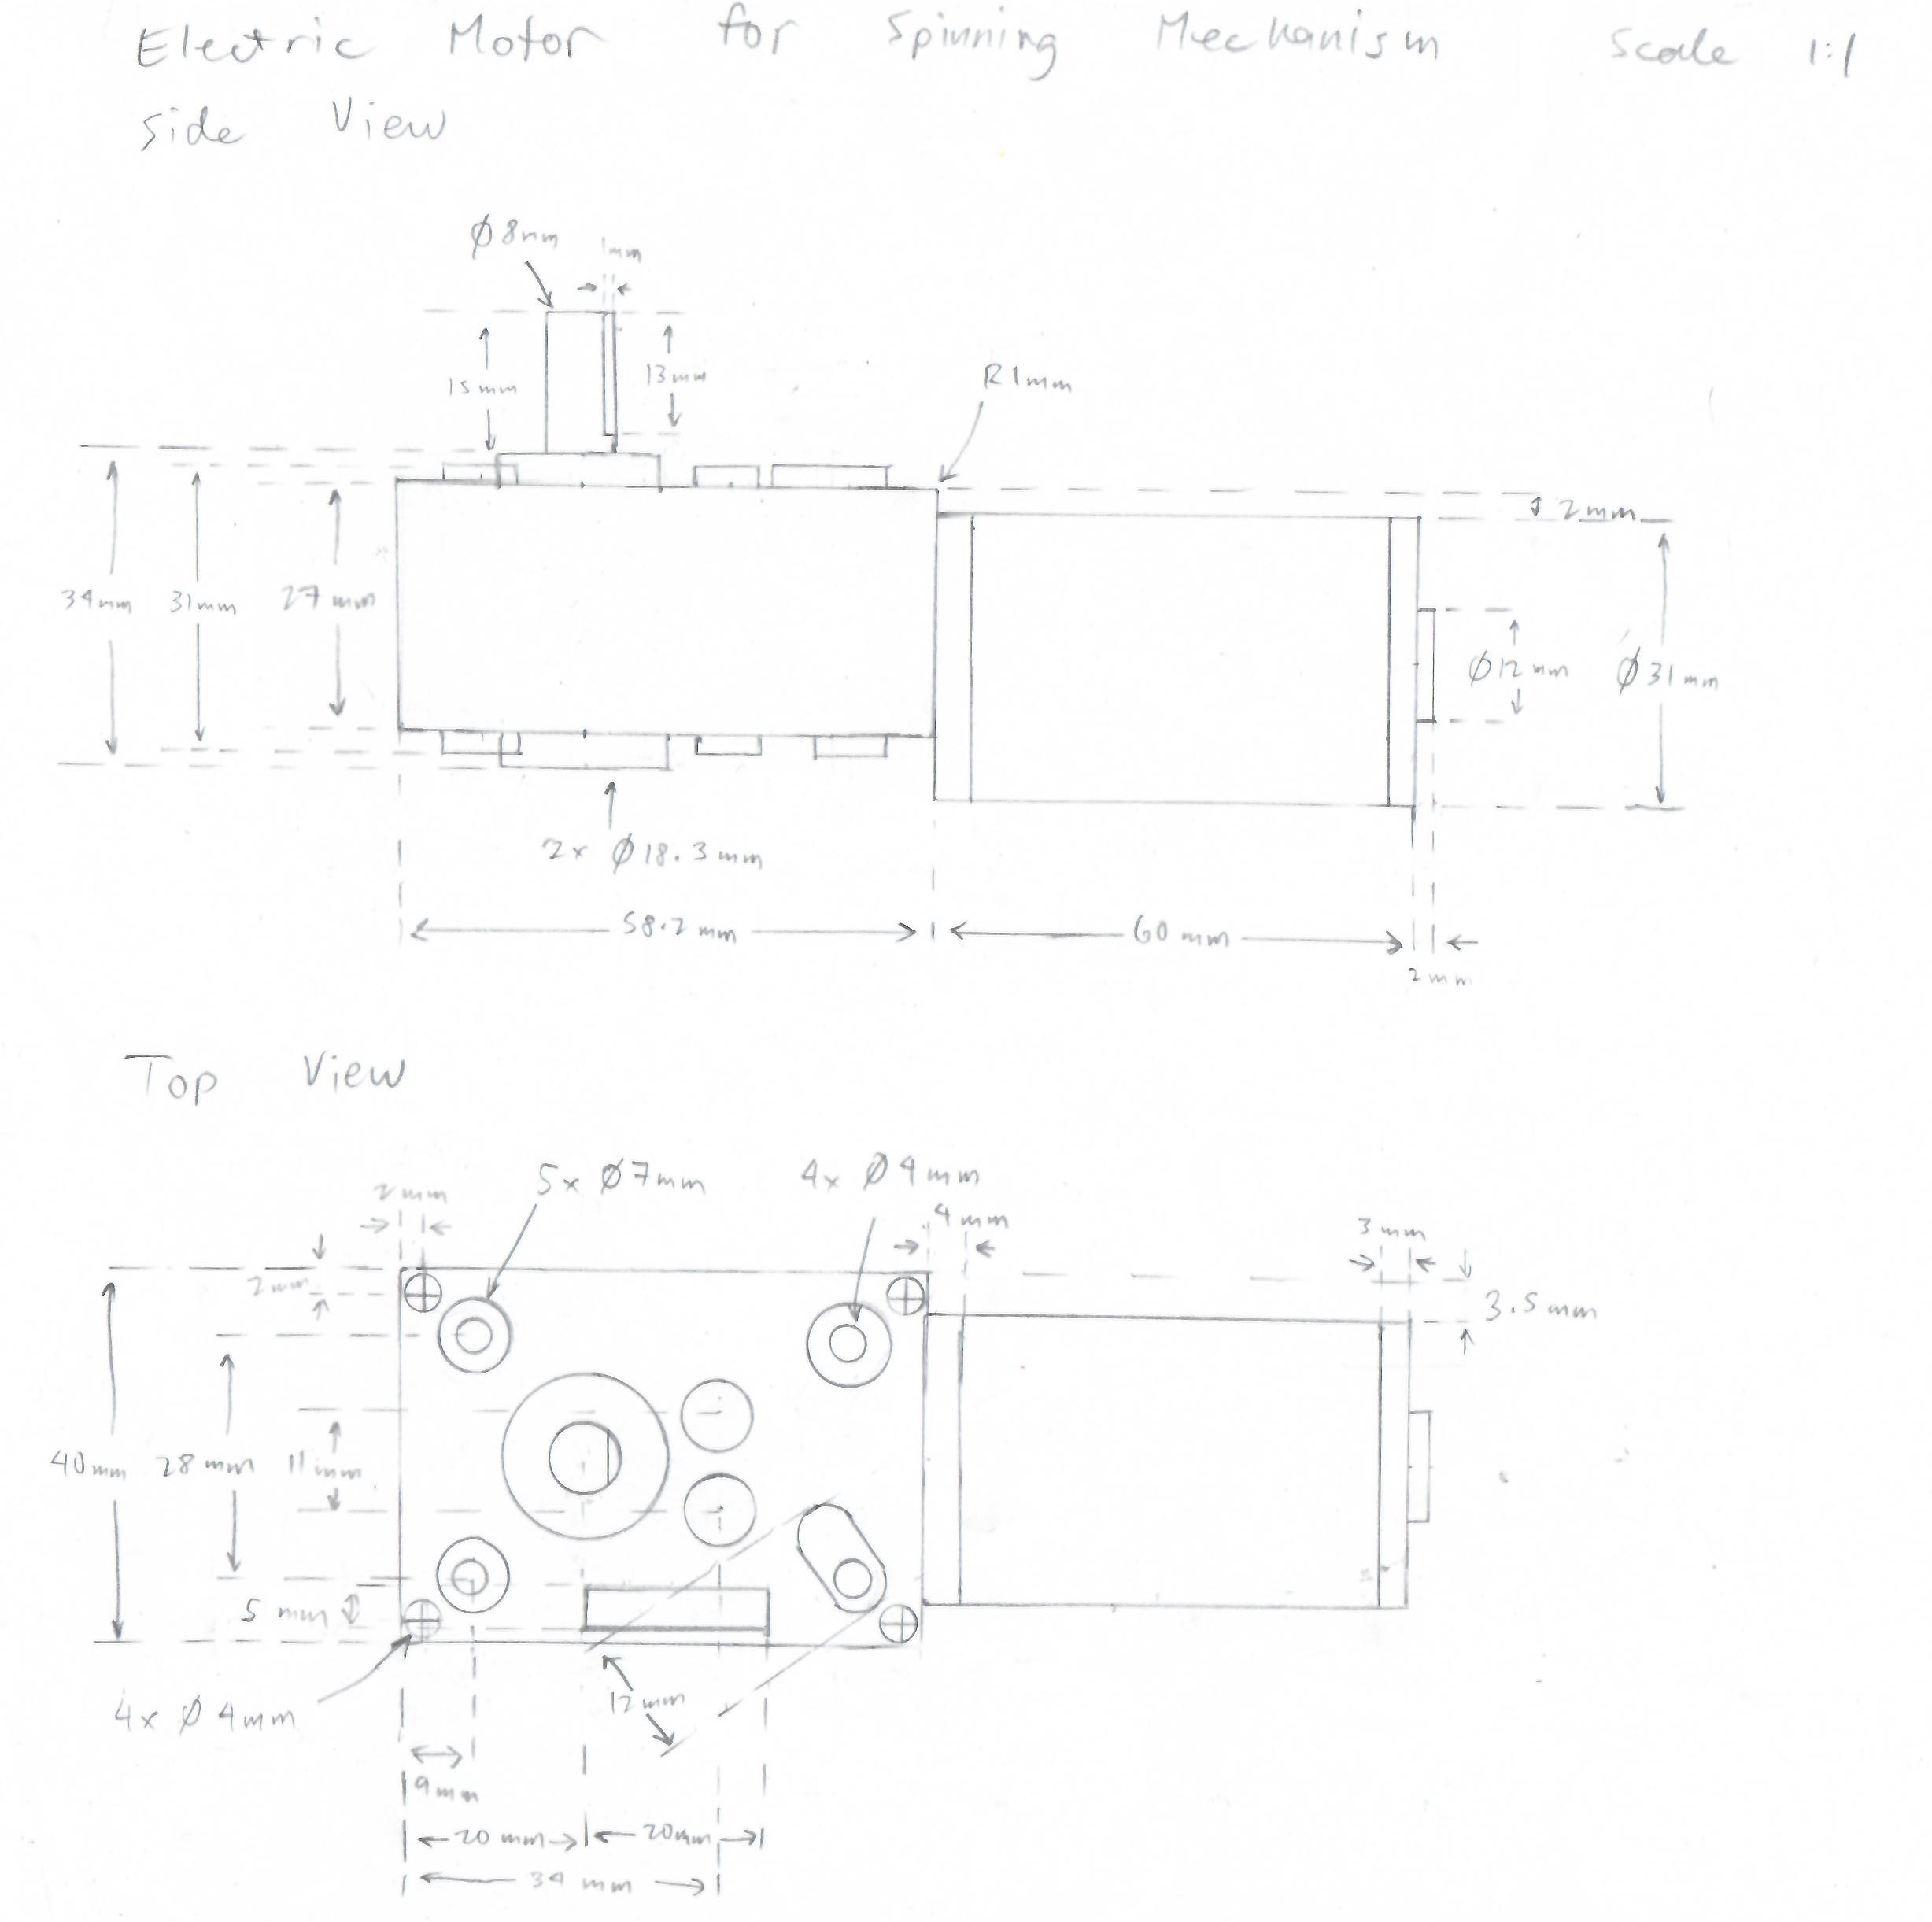 Electric Motor for Spinning Mechanism Scale 1:1
Side View
Ø8mm
1mm
15mm
13mm
R1mm
2mm
34mm
31mm
27mm
Ø12mm
Ø31mm
2x Ø18.3mm
58.2mm
60mm
2mm
Top View
5x Ø7mm
4x Ø4mm
2mm
4mm
3mm
2mm
3.5mm
40mm
28mm
11mm
5mm
4x Ø4mm
12mm
9mm
20mm
20mm
34mm